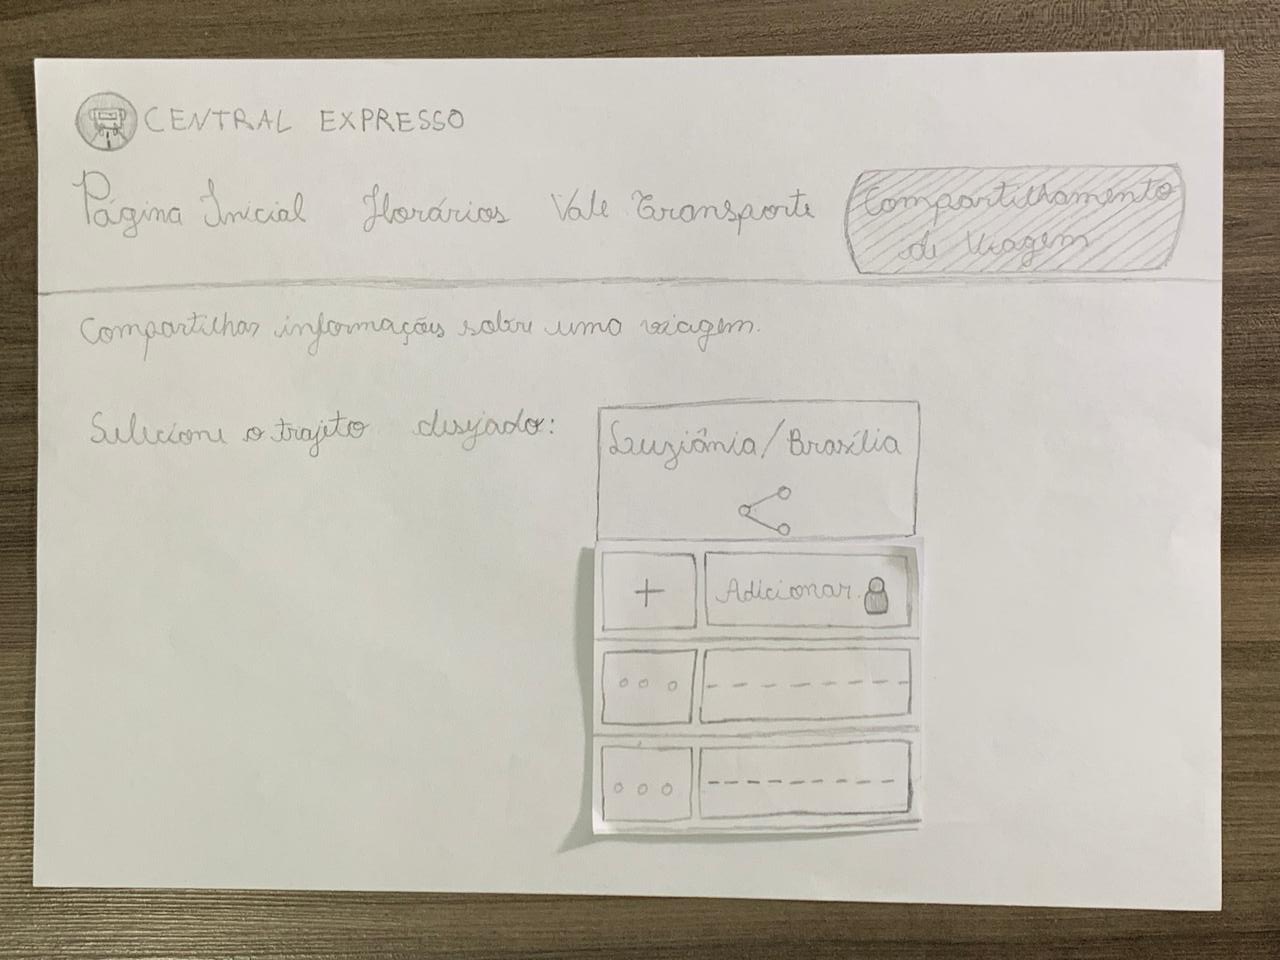 CENTRAL EXPRESSO
Página Inicial Horários Vale Transporte Compartilhamento
de Viagem
Compartilhar informações sobre uma viagem.
Selecione o trajeto desejado:
Luziânia/Brasília
+ Adicionar